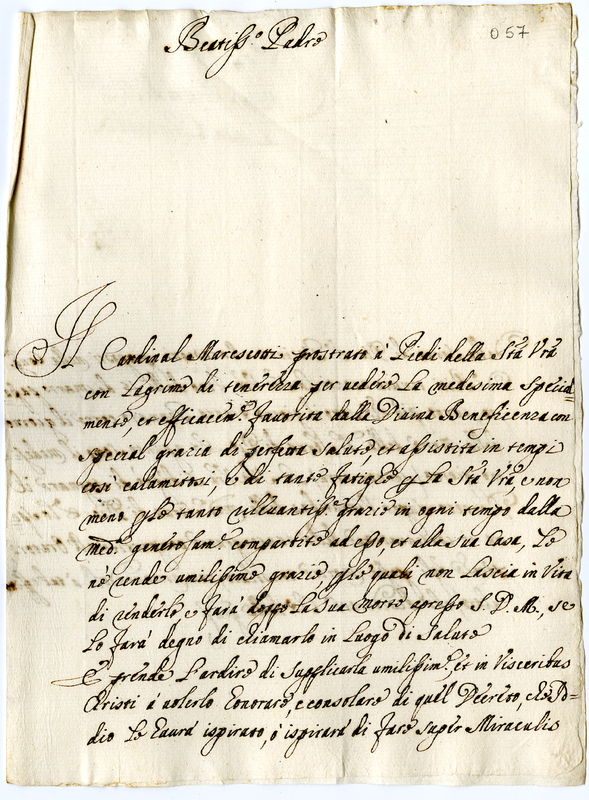 057
Beatiss.º Padre
Il Cardinal Marescotti prostrato à Piedi della Stà Vrà
con Lagrime di tenerezza per vedere La medesima special=
mente, et efficacem.e favorita dalla Divina Beneficenza con
special grazia di perfetta salute, et assistita in tempi
così calamitosi, e di tante fatighe p La Stà Vrà e non
meno p le tanto rilevantiss.e grazie in ogni tempo dalla
med.a generosam.e compartite ad esso, et alla sua Casa, Le
ne rende umilissime grazie, p le quali non Lascia in Vita
di renderle e farà doppo La sua morte apresso S. D. M., se
Lo farà degno di chiamarlo in Luogo di Salute
E prende L'ardire di supplicarla umilissim.e et in Visceribus
Christi à volerlo honorare, e consolare di quel Decreto, che Id=
dio Le haurà ispirato, ò ispirarà di fare super Miraculis